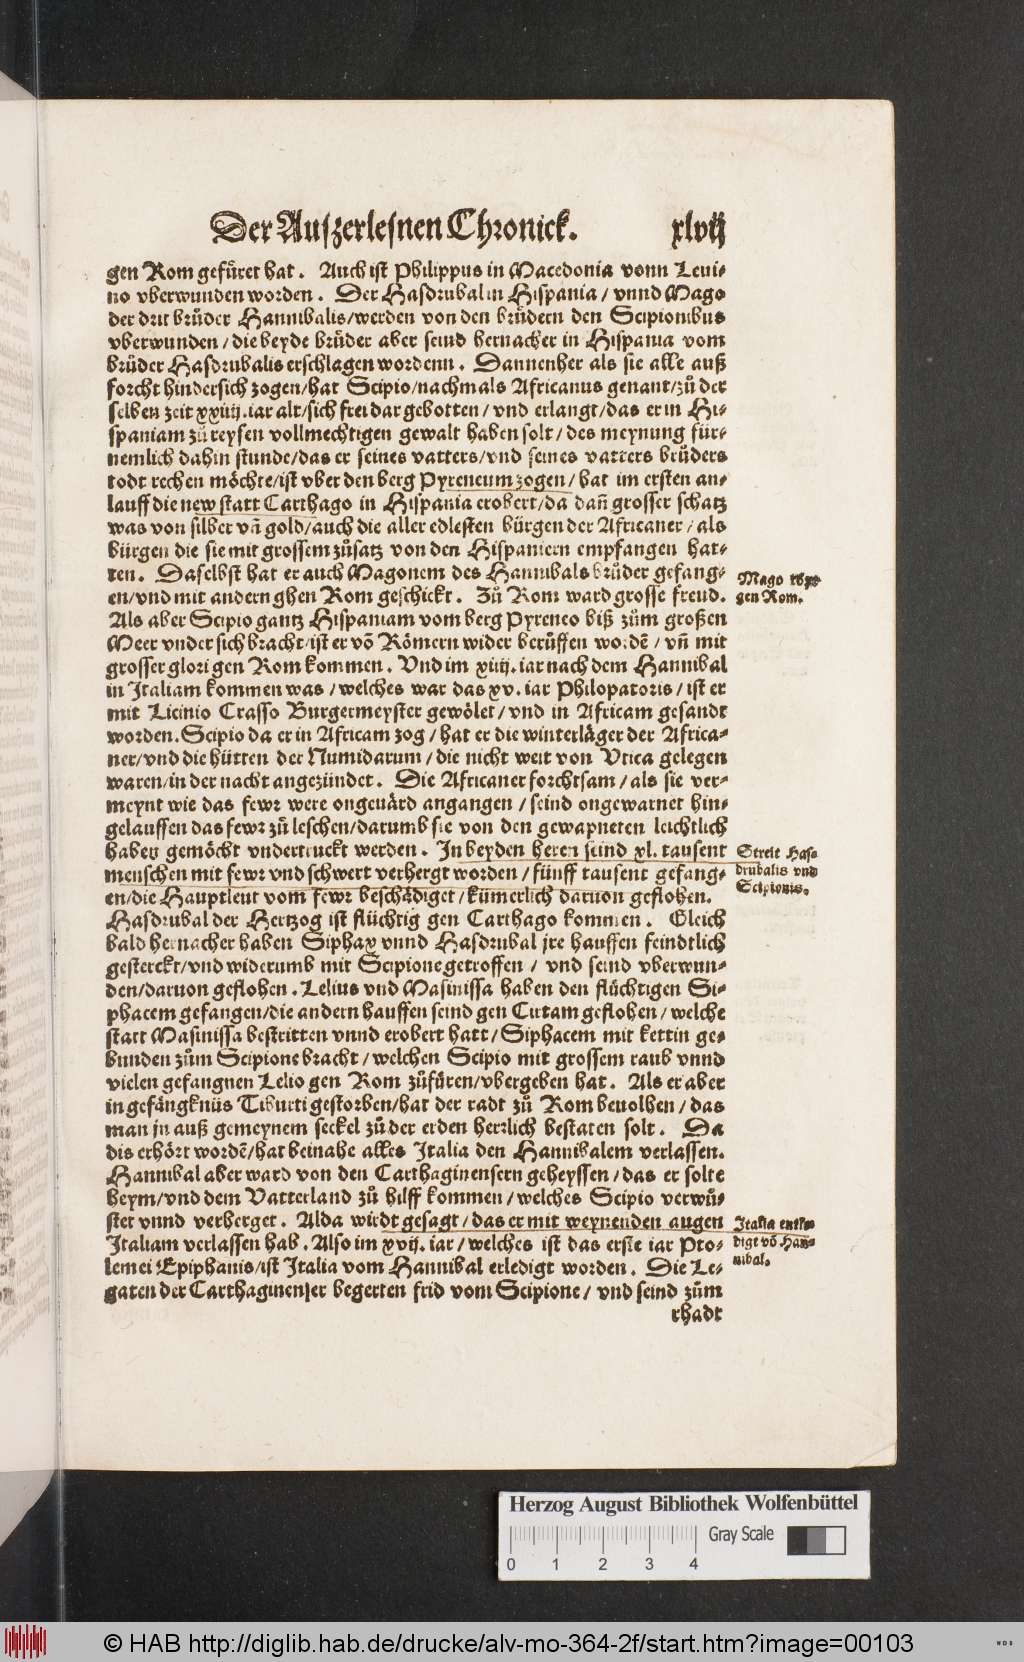 Der Auszerlesnen Chronick. xlvij
gen Rom gefüret hat. Auch ist Philippus in Macedonia vonn Leui-
no vberwunden worden. Der Hasdrubal in Hispania / vnnd Mago
der drit brůder Hannibalis/werden von den brůdern den Scipionibus
vberwunden / die beyde brůder aber seind hernacher in Hispania vom
brůder Hasdrubalis erschlagen wordenn. Dannenher als sie alle auß
forcht hindersich zogen/hat Scipio/nachmals Africanus genant/zů der
selben zeit xxiiij. iar alt/sich frei dar gebotten / vnd erlangt/das er in Hi-
spaniam zů reysen vollmechtigen gewalt haben solt / des meynung für-
nemlich dahin stunde/das er seines vatters/vnd seines vatters brůders
todt rechen möchte/ist vber den berg Pyreneum zogen / hat im ersten an-
lauff die new statt Carthago in Hispania erobert/da dañ grosser schatz
was von silber vñ gold/auch die aller edlesten bürgen der Africaner / als
bürgen die sie mit grossem zůsatz von den Hispaniern empfangen hat-
ten. Daselbst hat er auch Magonem des Hannibals brůder gefang-
en/vnd mit andern ghen Rom geschickt. Zů Rom ward grosse freud.
Mago
gen Rom.
Als aber Scipio gantz Hispaniam vom berg Pyreneo biß zům großen
Meer vnder sich bracht/ist er võ Römern wider berůffen wordẽ / vñ mit
grosser glori gen Rom kommen. Vnd im xiiij. iar nach dem Hannibal
in Italiam kommen was / welches war das xv. iar Philopatoris / ist er
mit Licinio Crasso Burgermeyster gewölet / vnd in Africam gesandt
worden. Scipio da er in Africam zog / hat er die winterläger der Africa-
ner/vnd die hütten der Numidarum / die nicht weit von Vtica gelegen
waren/in der nacht angezündet. Die Africaner forchtsam / als sie ver-
meynt wie das fewr were ongeuärd angangen / seind ongewarnet hin-
gelauffen das fewr zů leschen/darumb sie von den gewapneten leichtlich
haben gemöcht vndertruckt werden. In beyden heren seind xl. tausent
menschen mit fewr vnd schwert verhergt worden / fünff tausent gefang-
en/die Hauptleut vom fewr beschädiget / kümerlich daruon geflohen.
Streit Has-
drubalis vnd
Scipionis.
Hasdrubal der Hertzog ist flüchtig gen Carthago kommen. Gleich
bald hernacher haben Siphax vnnd Hasdrubal jre hauffen feindtlich
gesterckt/vnd widerumb mit Scipione getroffen / vnd seind vberwun-
den/daruon geflohen. Lelius vnd Masinissa haben den flüchtigen Si-
phacem gefangen/die andern hauffen seind gen Cirtam geflohen / welche
statt Masinissa bestritten vnnd erobert hatt / Siphacem mit kettin ge-
bunden zům Scipione bracht / welchen Scipio mit grossem raub vnnd
vielen gefangnen Lelio gen Rom zůfüren/vbergeben hat. Als er aber
in gefängknüs Tiburti gestorben/hat der radt zů Rom beuolhen / das
man jn auß gemeynem seckel zů der erden herrlich bestaten solt. Da
dis erhört wordẽ/hat beinahe alles Italia den Hannibalem verlassen.
Hannibal aber ward von den Carthaginensern geheyssen / das er solte
heym/vnd dem Vatterland zů hilff kommen / welches Scipio verwů-
stet vnnd verherget. Alda wirdt gesagt / das er mit weynenden augen
Italiam verlassen hab. Also im xvij. iar / welches ist das erste iar Pto-
lemei Epiphanis/ist Italia vom Hannibal erledigt worden. Die Le-
gaten der Carthaginenser begerten frid vom Scipione / vnd seind zům
Italia entle-
digt võ Han-
nibal.
rhadt
Herzog August Bibliothek Wolfenbüttel
Gray Scale
0 1 2 3 4
© HAB http://diglib.hab.de/drucke/alv-mo-364-2f/start.htm?image=00103